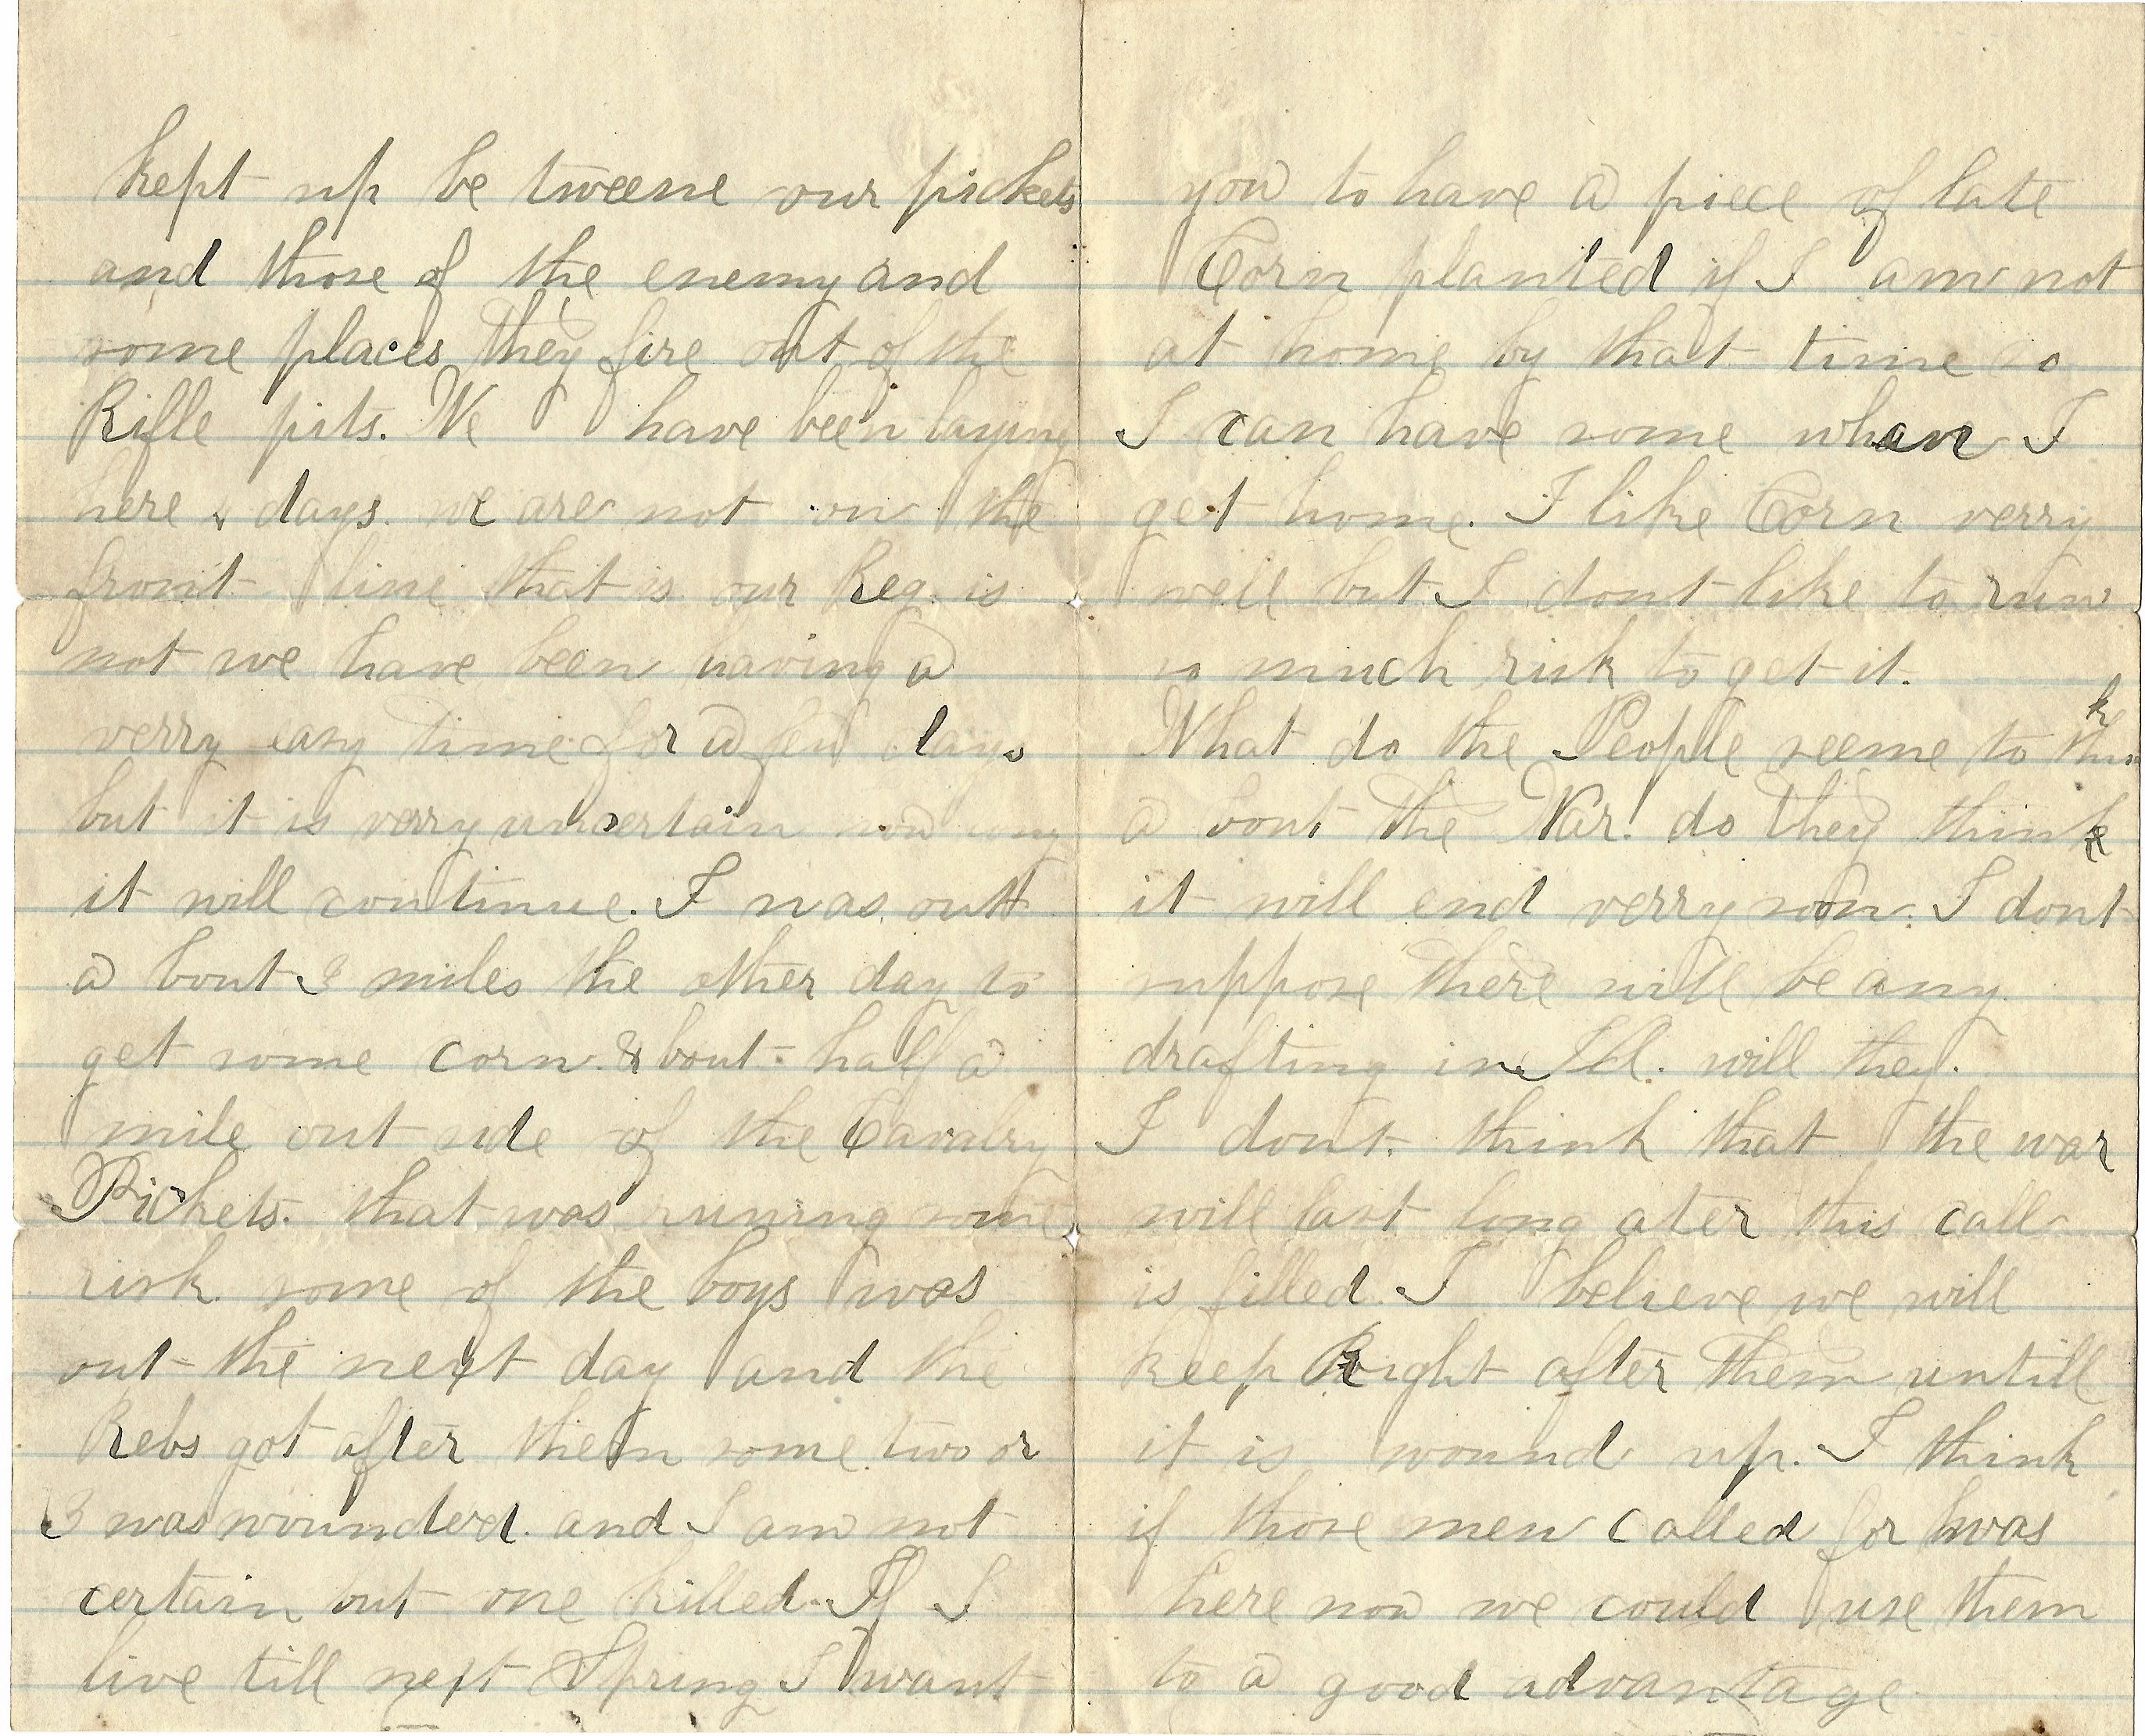 kept up be tweene our pickets
and those of the enemy and
some places they fire out of the
Rifle pits. We have been laying
here days. we are not on the
front line that is our Reg. is
not we have been having a
verry easy time for a few days
but it is verry uncertain how long
it will continue. I was out
a bout miles the other day to
get some corn. & bout half a
mile out side of the Cavalry
Pickets. that was runing some
risk. some of the boys was
out the next day and the
Rebs got after them some two or
3 was wounded. and I am not
certain but one killed. If I
live till next Spring I want
you to have a piece of late
Corn planted if I am not
at home by that time so
I can have some when I
get home. I like Corn verry
well but I dont like to run
so much risk to get it.
What do the People seeme to think
a bout the War! do they think
it will end verry soon. I dont
suppose there will be any
drafting in Ill. will they.
I dont. think that the war
will last long ater this call
is filled. I believe we will
keep Right after them untill
it is wound up. I think
if those men called for was
here now we could use them
to a good advantage